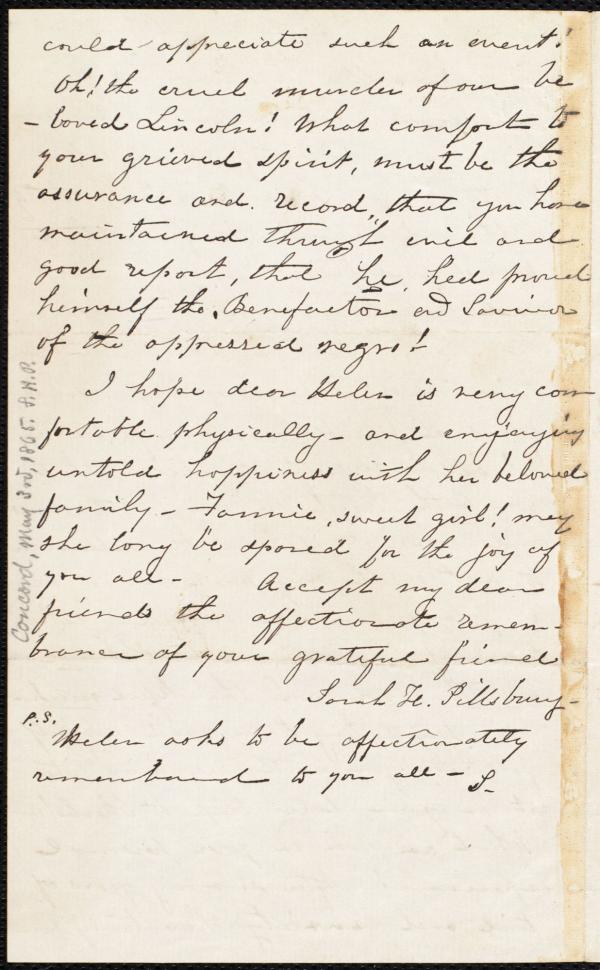 could appreciate such an event!
Oh! the cruel murder of our be
-loved Lincoln! What comfort to
your grieved spirit, must be the
assurance and record, that you have
maintained through evil and
good report, that he, had proved
himself the Benefactor and Saviour
of the oppressed negro!
I hope dear Helen is very com
fortable physically - and enjoying
untold happiness with her beloved
family - Fannie, sweet girl! may
she long be spared for the joy of
you all - Accept my dear
friends the affectionate remem-
brance of your grateful friend
Sarah H. Pillsbury -
P.S.
Helen asks to be affectionately
remembered to you all - S-
Concord, May 3rd, 1865. S.H.P.